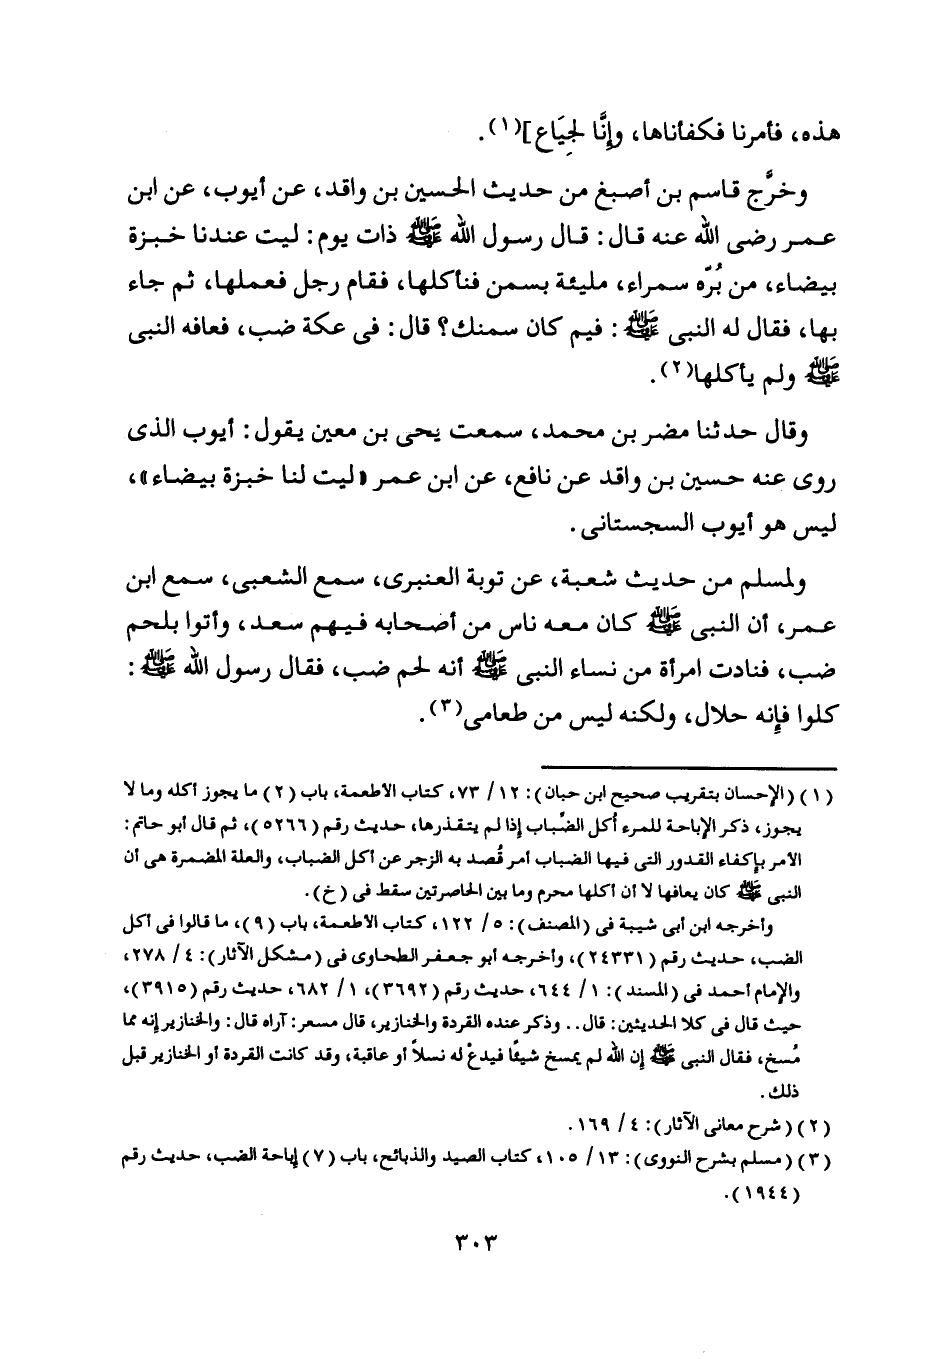 هذه، فأمرنا فكفأناها، وإِنَّا لجِيَاع](١).
وخرَّج قاسم بن أصبغ من حديث الحسين بن واقد، عن أيوب، عن ابن
عمر رضى الله عنه قال: قال رسول الله ﷺ ذات يوم: ليت عندنا خبزة
بيضاء، من بُرّه سمراء، مليئة بسمن فنأكلها، فقام رجل فعملها، ثم جاء
بها، فقال له النبى ﷺ: فيم كان سمنك؟ قال: فى عكة ضب، فعافه النبى
ﷺ ولم يأكلها(٢).
وقال حدثنا مضر بن محمد، سمعت يحى بن معين يقول: أيوب الذى
روى عنه حسين بن واقد عن نافع، عن ابن عمر «ليت لنا خبزة بيضاء»،
ليس هو أيوب السجستانى.
ولمسلم من حديث شعبة، عن توبة العنبرى، سمع الشعبى، سمع ابن
عمر، أن النبى ﷺ كان معه ناس من أصحابه فيهم سعد، وأتوا بلحم
ضب، فنادت امرأة من نساء النبى ﷺ أنه لحم ضب، فقال رسول الله ﷺ:
كلوا فإِنه حلال، ولكنه ليس من طعامى(٣).
(١) (الإحسان بتقريب صحيح ابن حبان): ١٢/ ٧٣، كتاب الأطعمة، باب (٢) ما يجوز أكله وما لا
يجوز، ذكر الإباحة للمرء أكل الضِّباب إذا لم يتقذرها، حديث رقم (٥٢٦٦)، ثم قال أبو حاتم:
الأمر بإكفاء القدور التى فيها الضباب أمر قُصد به الزجر عن أكل الضباب، والعلة المضمرة هى أن
النبى ﷺ كان يعافها لا أن أكلها محرم وما بين الحاصرتين سقط فى (خ).
وأخرجه ابن أبى شيبة فى (المصنف): ٥/ ١٢٢، كتاب الأطعمة، باب (٩)، ما قالوا فى أكل
الضب، حديث رقم (٢٤٣٣١)، وأخرجه أبو جعفر الطحاوى فى (مشكل الآثار): ٤/ ٢٧٨،
والإمام أحمد فى (المسند): ١/ ٦٤٤، حديث رقم (٣٦٩٢)، ١/ ٦٨٢، حديث رقم (٣٩١٥)،
حيث قال فى كلا الحديثين: قال.. وذكر عنده القردة والخنازير، قال مسعر: آراه قال: والخنازير إنه مما
مُسخ، فقال النبى ﷺ إن الله لم يمسخ شيئًا فيدعْ له نسلاً أو عاقبة، وقد كانت القردة أو الخنازير قبل
ذلك.
(٢) (شرح معانى الآثار): ٤/ ١٦٩.
(٣) (مسلم بشرح النووى): ١٣/ ١٠٥، كتاب الصيد والذبائح، باب (٧) إباحة الضب، حديث رقم
(١٩٤٤).
٣٠٣